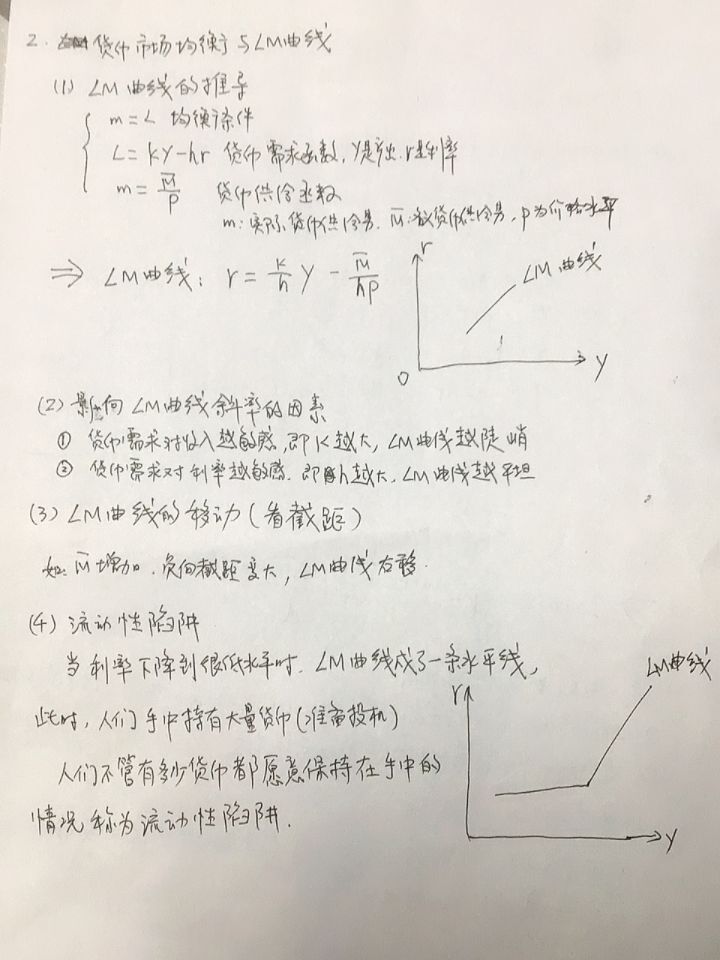 2. 货币市场均衡与LM曲线
(1) LM曲线的推导
m = L 均衡条件
L = kY - hr 货币需求函数, Y是产出, r是利率
m = M̅/P 货币供给函数
m: 实际货币供给量. M̅: 名义货币供给量, P为价格水平
⇒ LM曲线: r = k/h Y - M̅/hP
r
LM曲线
O
Y
(2) 影响LM曲线斜率的因素
① 货币需求对收入越敏感, 即k越大, LM曲线越陡峭
② 货币需求对利率越敏感. 即h越大, LM曲线越平坦
(3) LM曲线的移动(看截距)
如: M̅增加. 负向截距变大, LM曲线右移.
(4) 流动性陷阱
当利率下降到很低水平时. LM曲线成了一条水平线,
此时, 人们手中持有大量货币(准备投机)
人们不管有多少货币都愿意保持在手中的
情况称为流动性陷阱.
LM曲线
r
Y